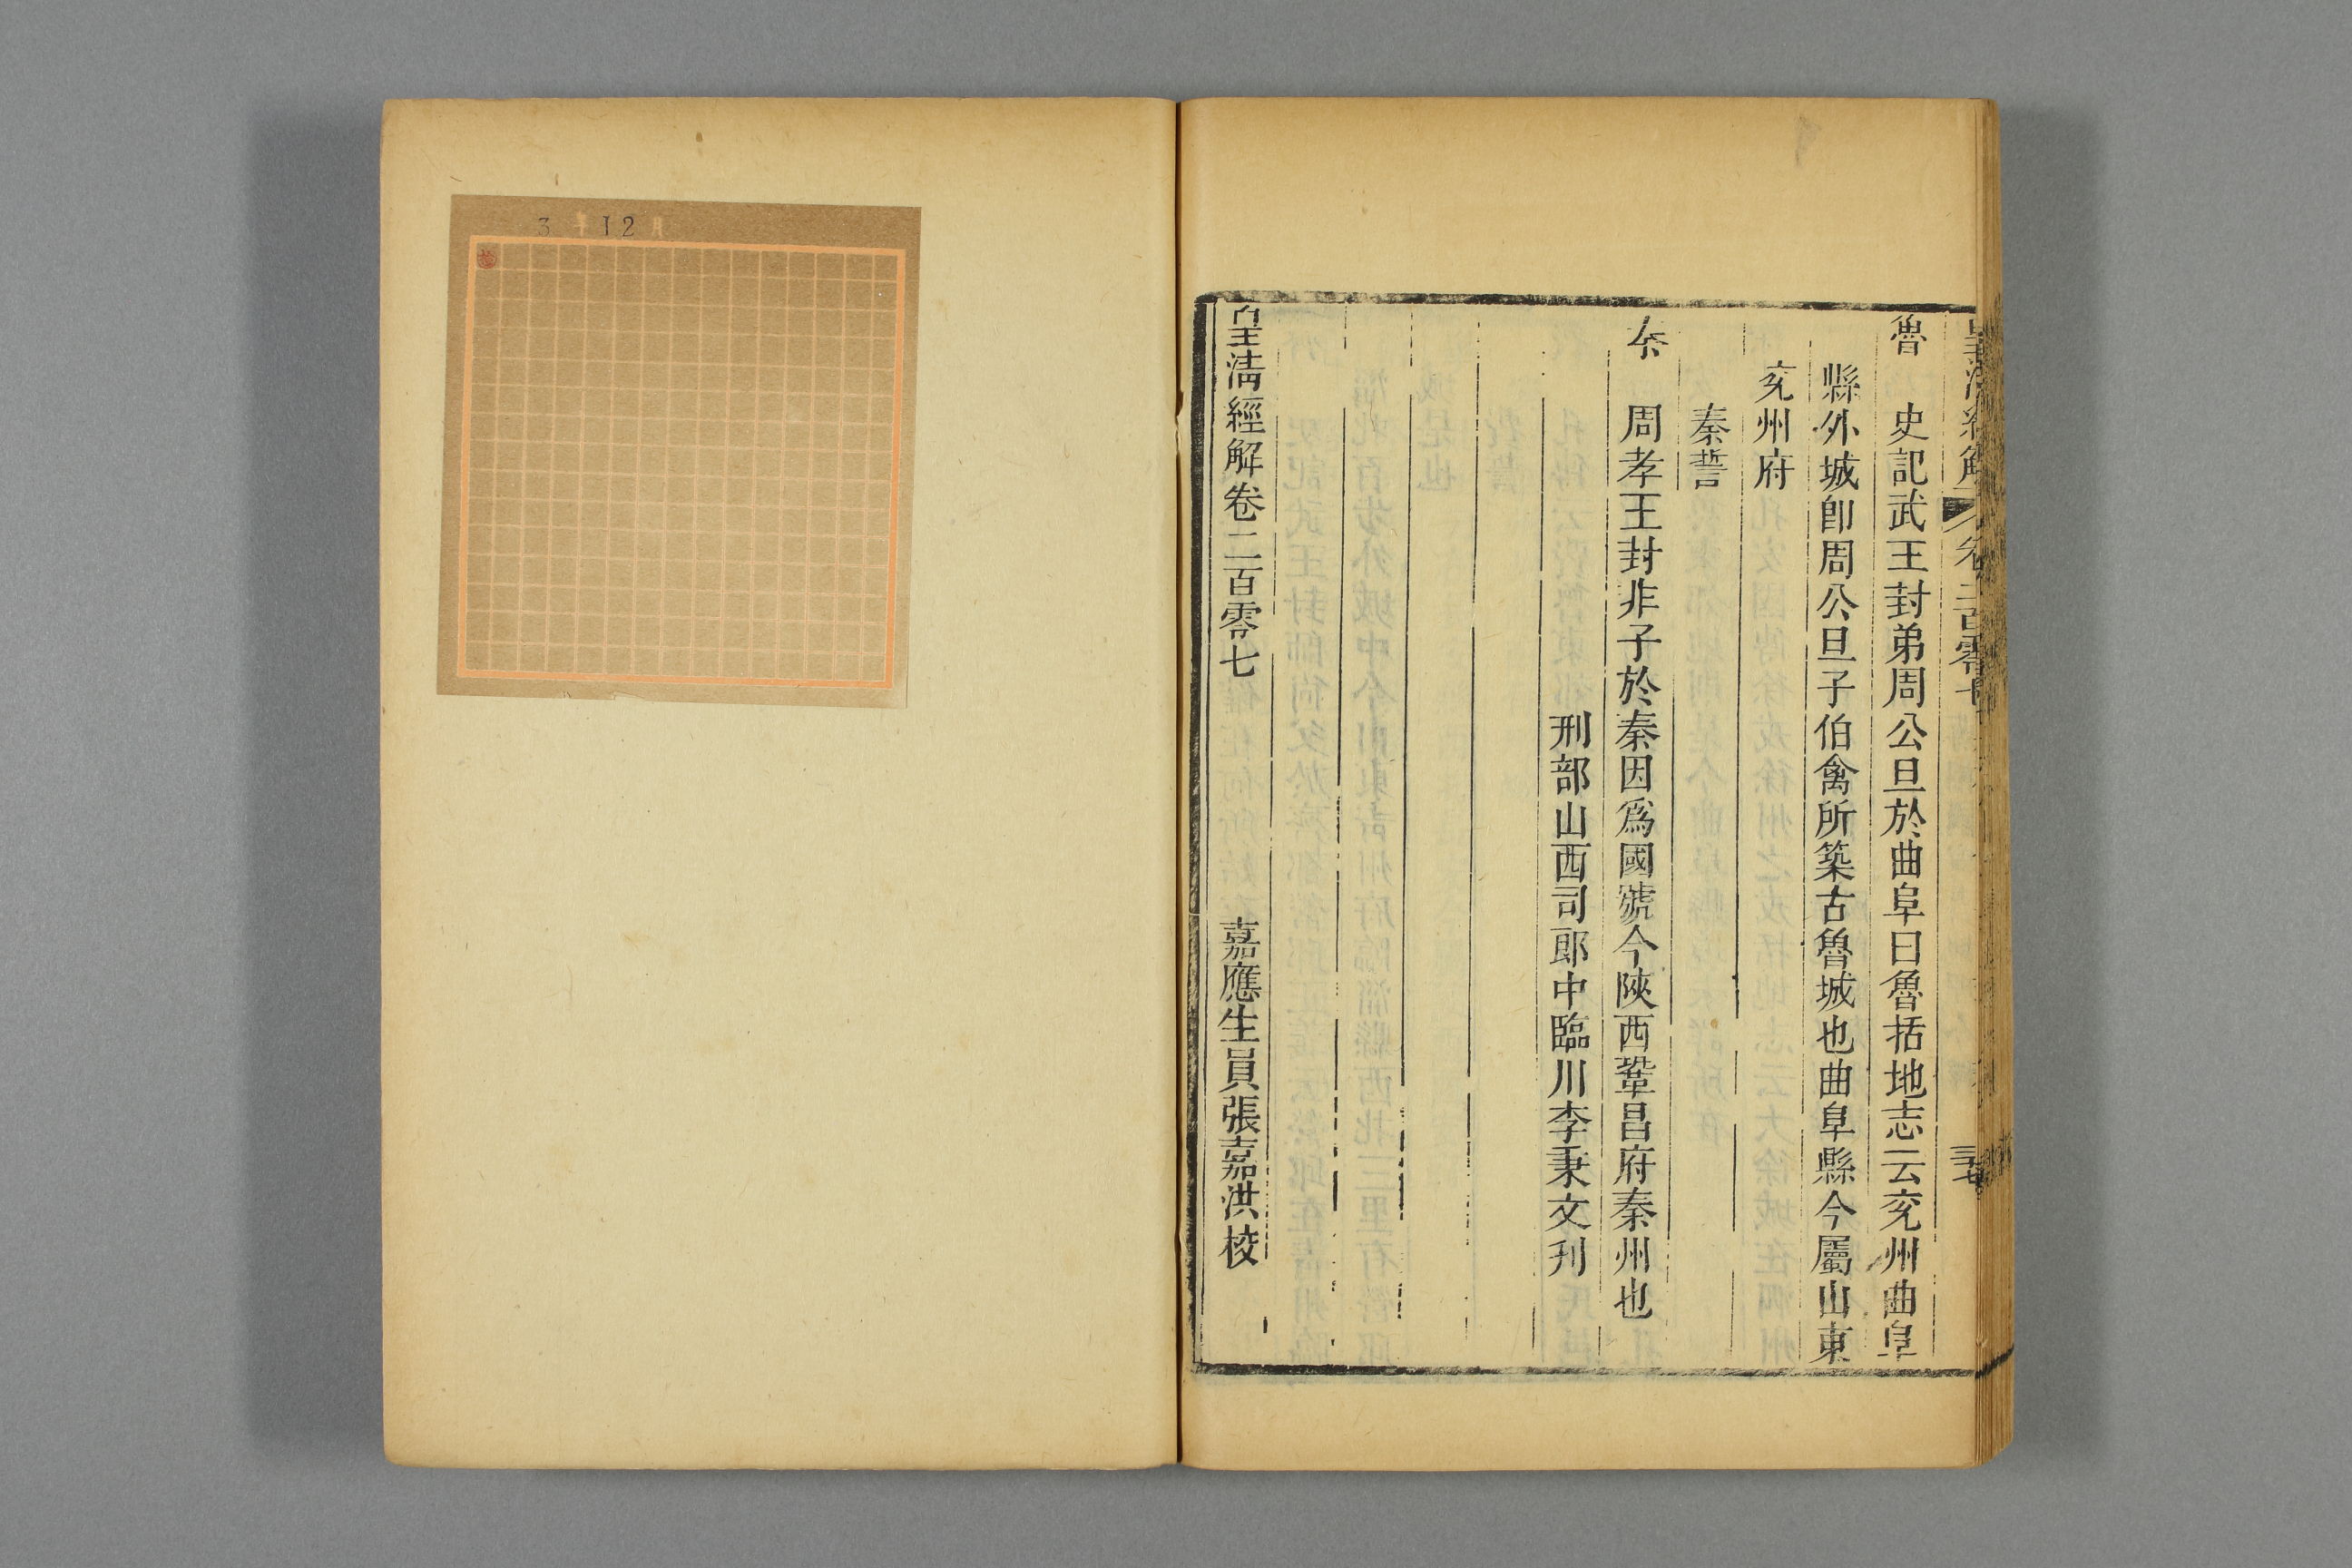 皇清經解 卷二百零七 三七
魯 史記武王封弟周公旦於曲阜曰魯括地志云兖州曲阜
縣外城卽周公旦子伯禽所築古魯城也曲阜縣今屬山東
兖州府
秦誓
秦 周孝王封非子於秦因爲國號今陜西鞏昌府秦州也
刑部山西司郎中臨川李秉文刋
皇清經解卷二百零七 嘉應生員張嘉洪校
3 年 12 月